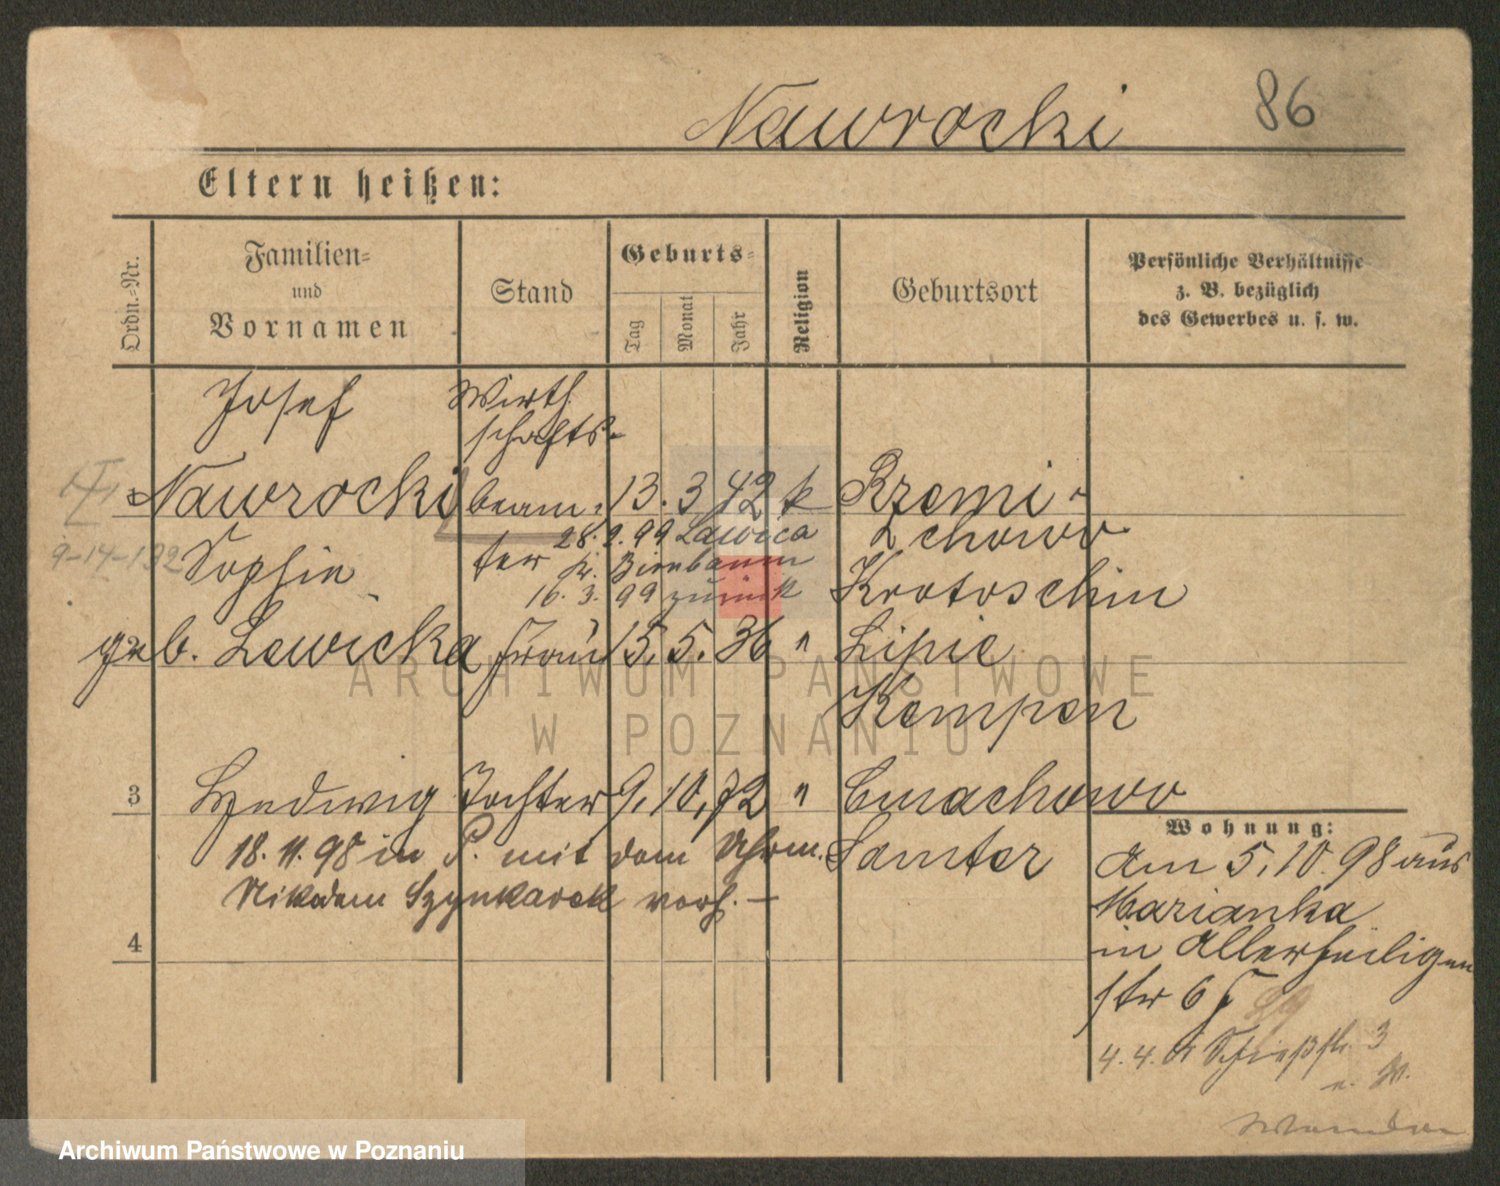 Nawrocki 86
Eltern heißen:
Ordn.-Nr.
Familien-
und
Vornamen
Stand
Geburts-
Tag
Monat
Jahr
Religion
Geburtsort
Persönliche Verhältnisse
z. B. bezüglich
des Gewerbes u. s. w.
Josef Wirth
schafts-
Nawrocki beam- 13. 3 42 k Rzemi-
chowo
ter 28. 2. 99 Lawica
Kr. Birnbaum
16. 3. 99 zurück
9-14-132
Sophie Krotoschin
geb. Lewicka Frau 15. 5. 36 " Lipie
Kempen
3 Hedwig Tochter 9. 10. 72 " Cmachowo
Samter
18. 11. 98 in P. mit dem Uhrm.
Nikodem Szynkarek verh. —
4
Wohnung:
Am 5. 10. 98 aus
Marianka
in Allerheiligen
str 6
4. 4. Schießstr. 3
ARCHIWUM PAŃSTWOWE
W POZNANIU
Archiwum Państwowe w Poznaniu